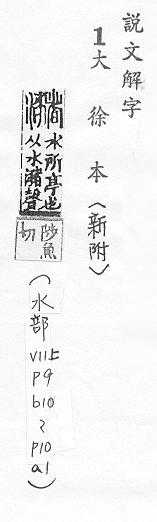 説文解字
1大徐本（新附）
瀦水所亭也
从水豬聲
陟魚
切
（水部VII上p9b10〜p10a1）